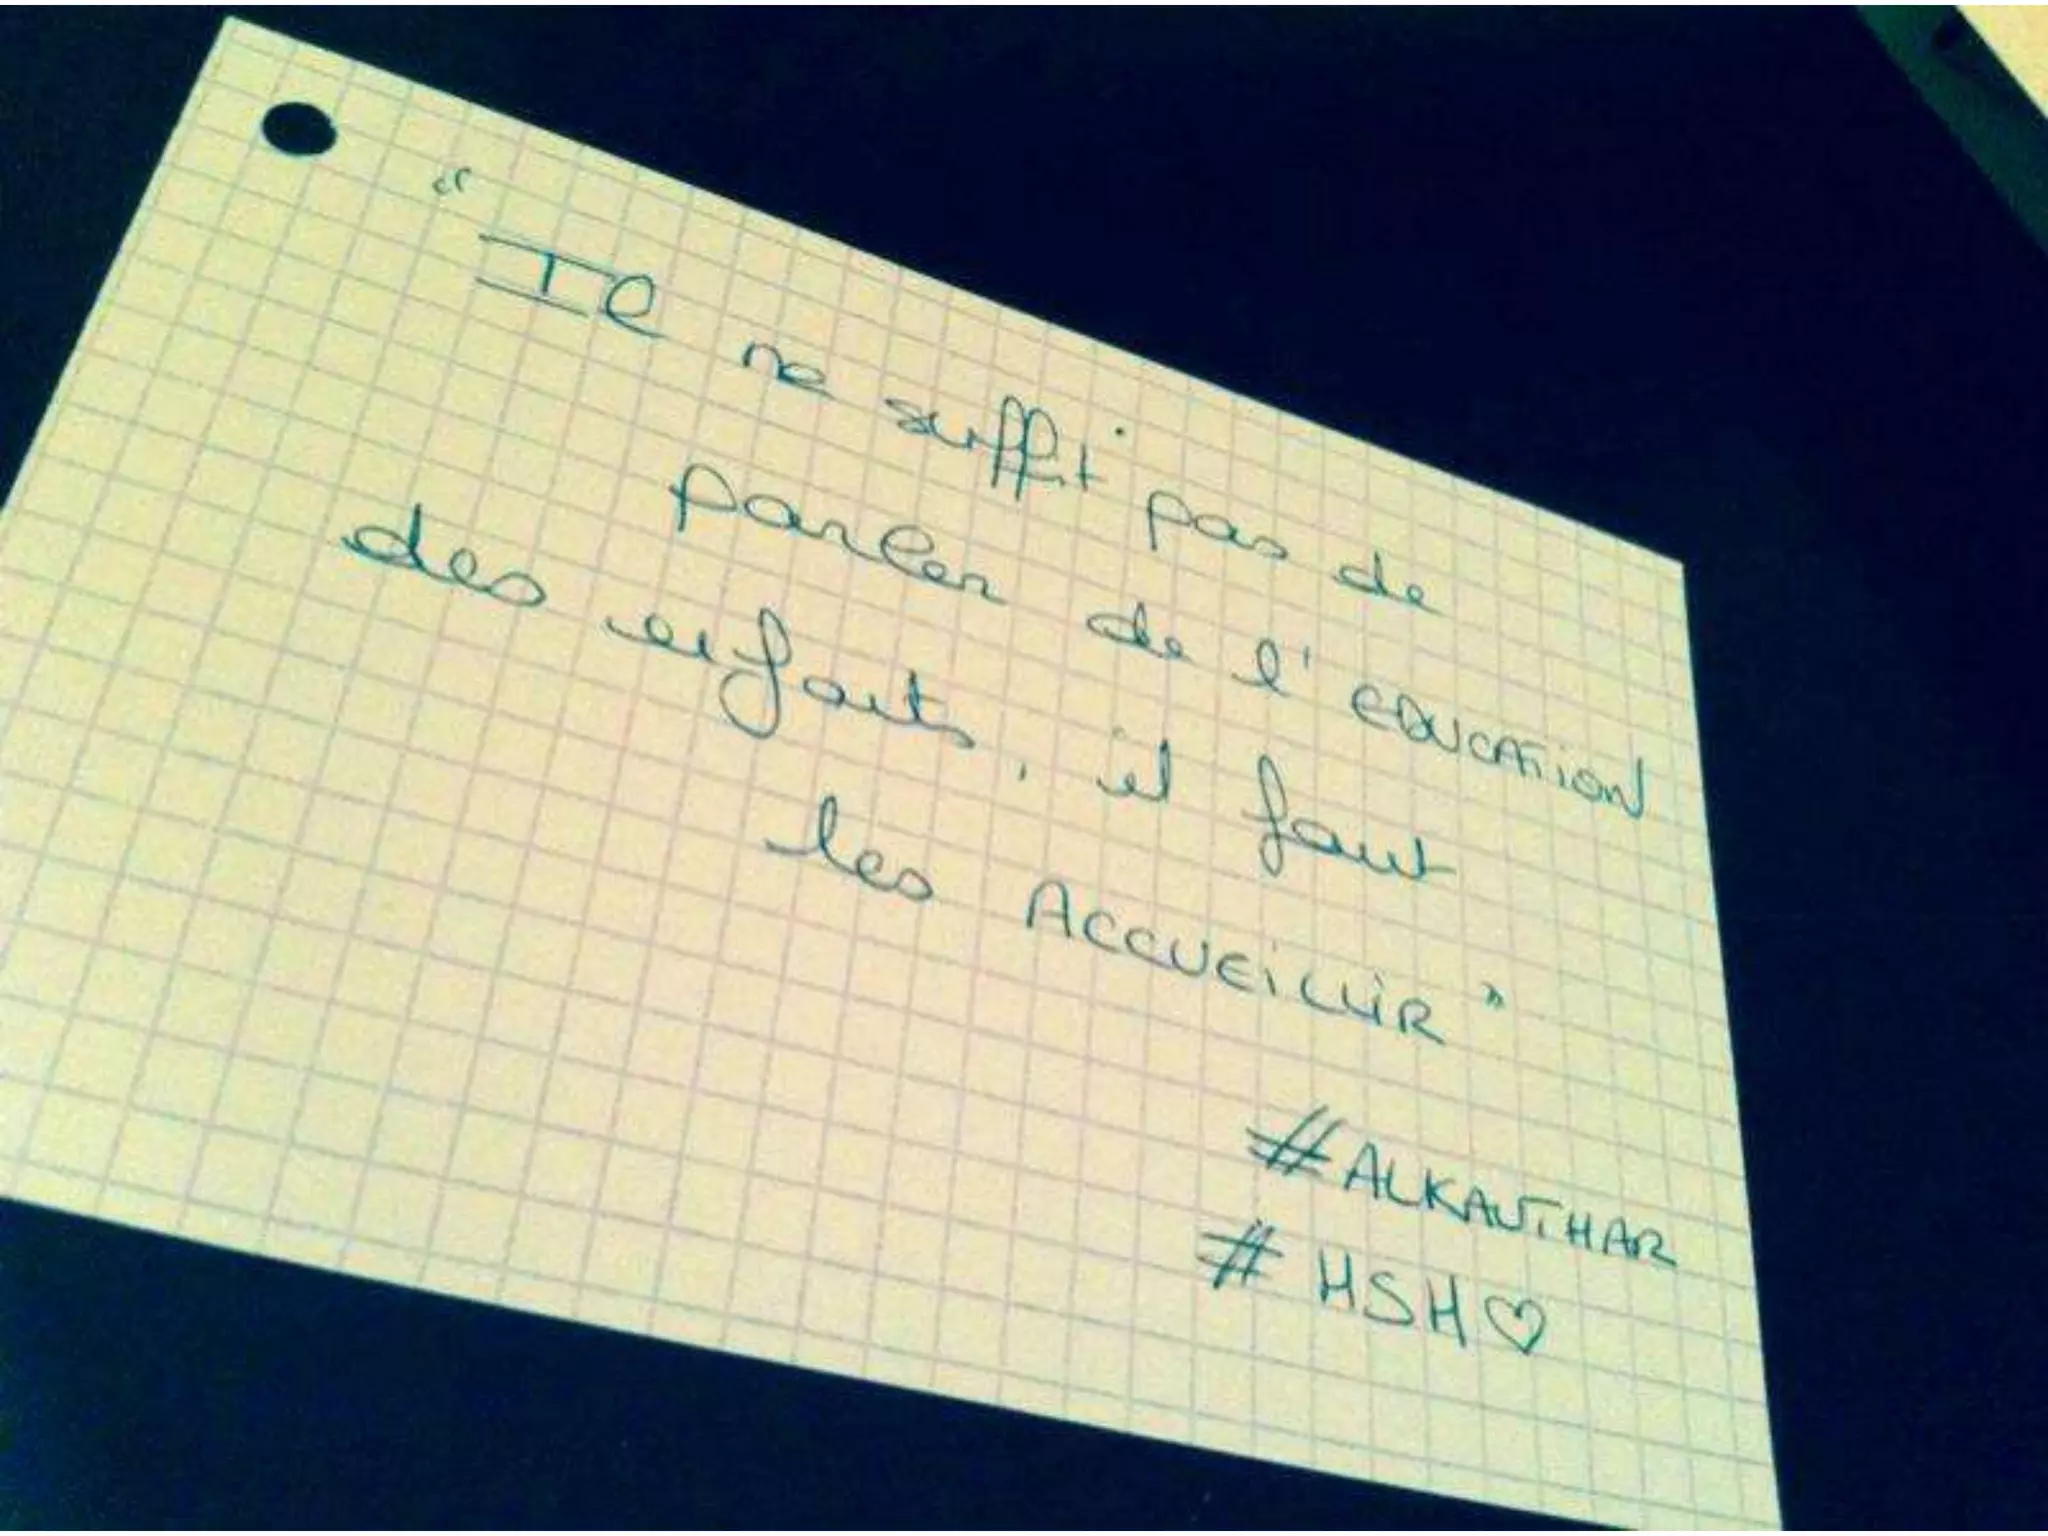 "Il ne suffit pas de
parler de l'EDUCATION
des enfants, il faut
les ACCUEILLIR"
#ALKAUTHAR
#HSH♡